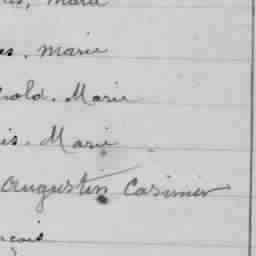 Marie
es, Marie
nold. Marie
is. Marie
Augustin Casimir
ncois